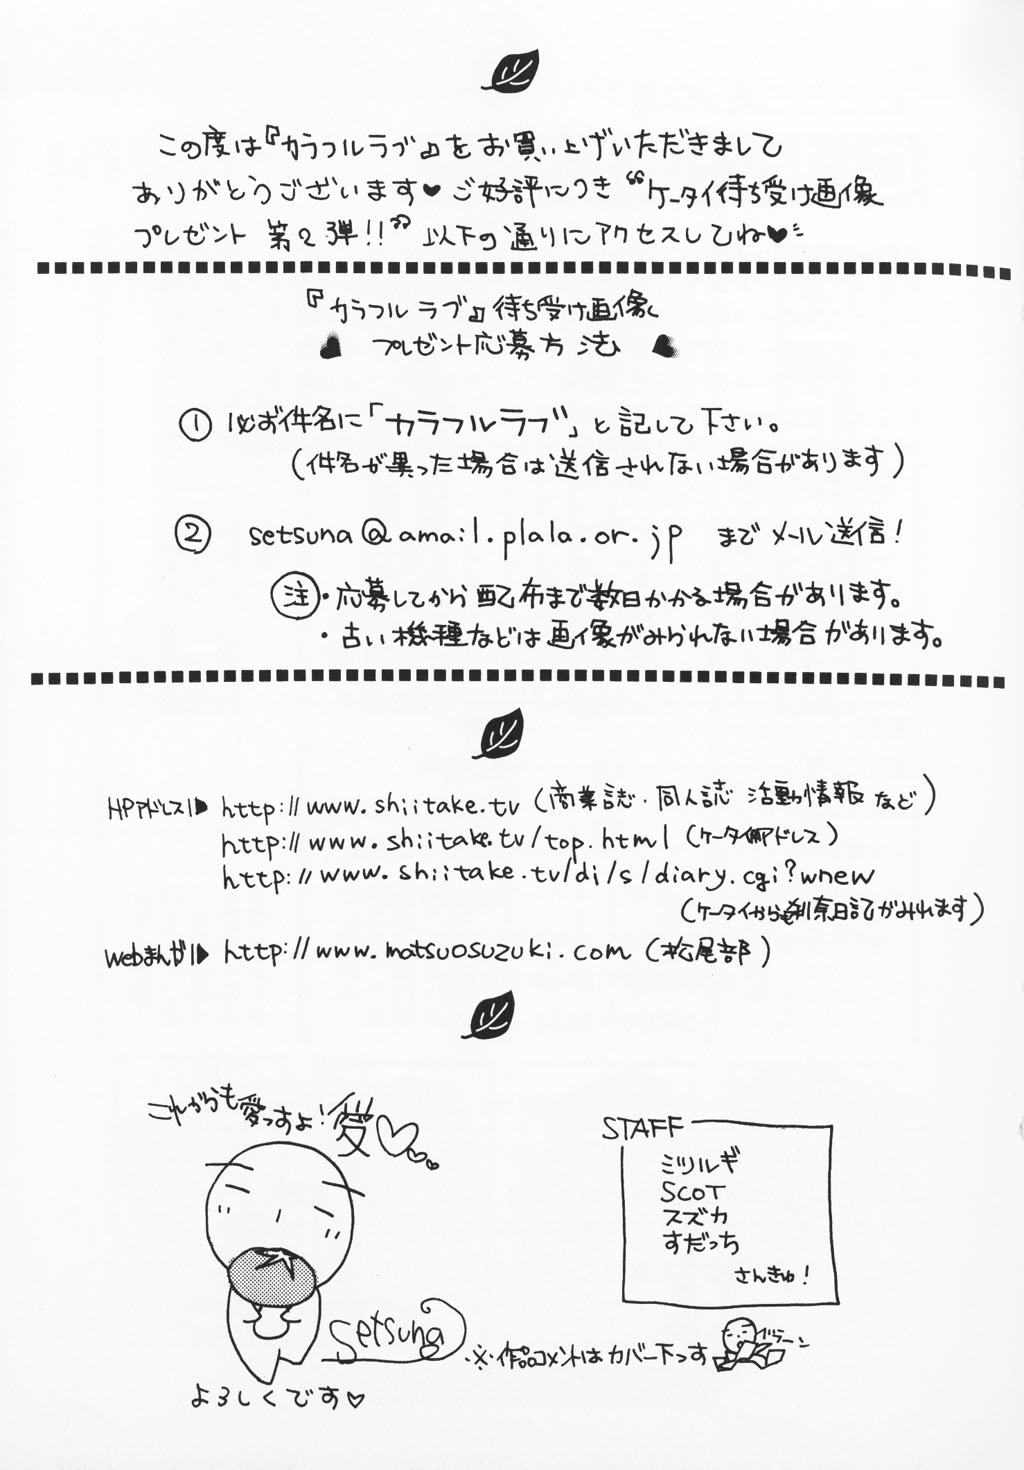 この度は『カラフルラブ』をお買い上げいただきまして
ありがとうございます♥ ご好評につき “ケータイ待ち受け画像
プレゼント 第2弾!!” 以下の通りにアクセスしてね♥
『カラフルラブ』待ち受け画像
プレゼント応募方法
① 必ず件名に「カラフルラブ」と記して下さい。
(件名が異った場合は送信されない場合があります)
② setsuna@amail.plala.or.jp までメール送信!
注・応募してから配布まで数日かかる場合があります。
・古い機種などは画像がみられない場合があります。
HPアドレス http://www.shiitake.tv (商業誌・同人誌 活動情報など)
http://www.shiitake.tv/top.html (ケータイ用アドレス)
http://www.shiitake.tv/di/s/diary.cgi?wnew
(ケータイからも刹奈日記がみれます)
webまんが http://www.matsuosuzuki.com (松尾部)
これからも愛っすよ!愛♡
Setsuna
よろしくです♡
STAFF
ミツルギ
SCOT
スズカ
すだっち
さんきゅ!
※作品コメントはカバー下っす